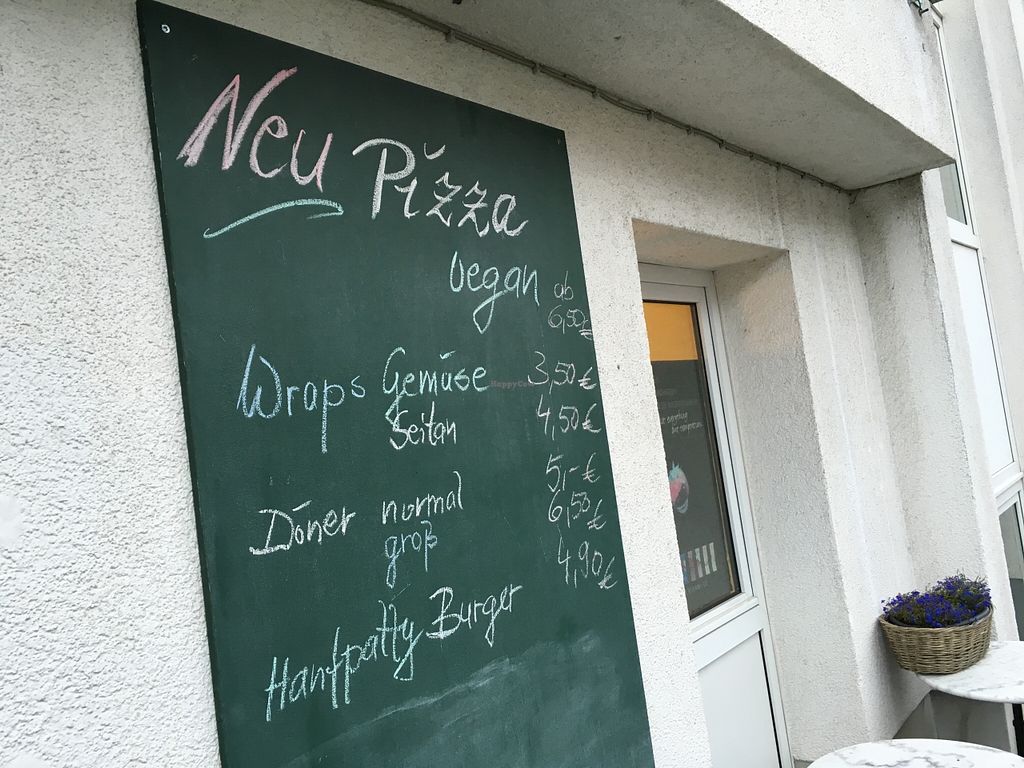 Neu Pizza
vegan ab
6,50€
Wraps Gemüse 3,50€
Seitan 4,50€
Döner normal 5,-€
groß 6,50€
Hanfpatty Burger 4,90€